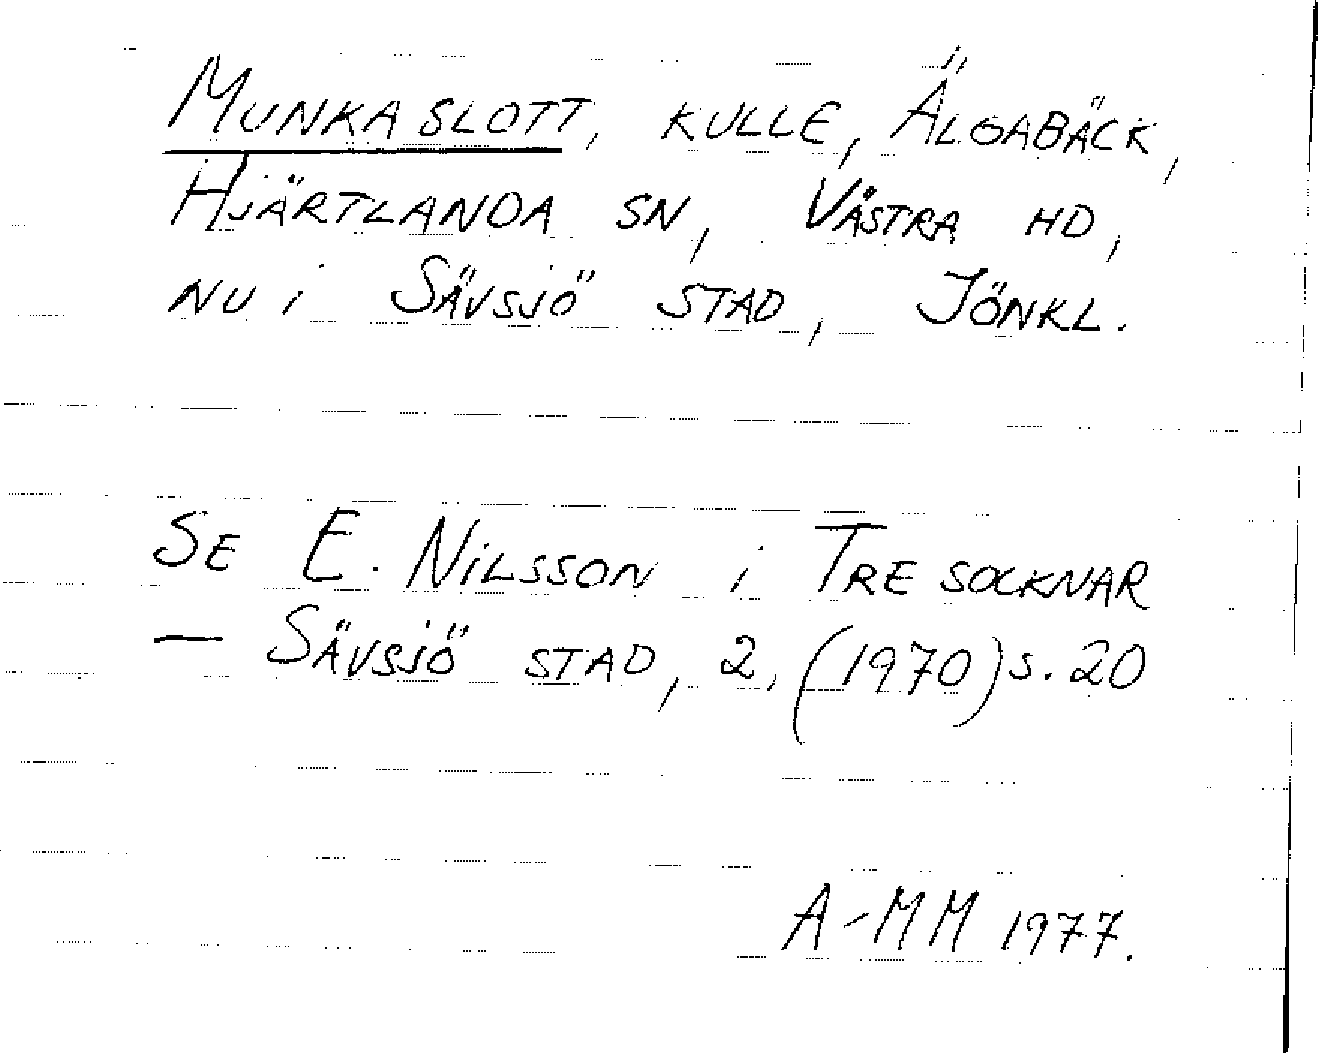 MUNKASLOTT, KULLE, ÄLGABÄCK,
HJÄRTLANDA SN, VÄSTRA HD,
NU i SÄVSJÖ STAD, JÖNKL.
SE E. NILSSON i TRE SOCKNAR
— SÄVSJÖ STAD, 2, (1970) s. 20
A-MM 1977.